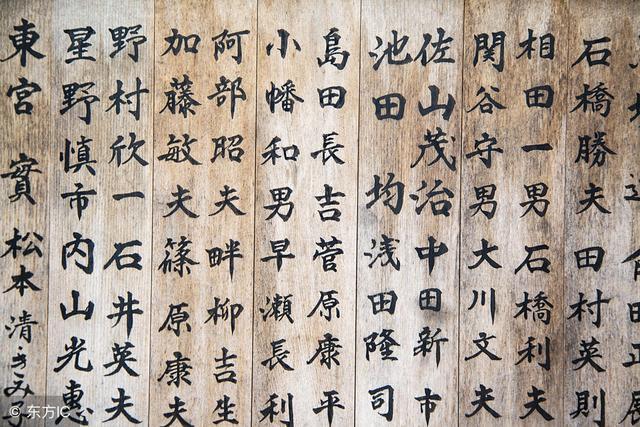 石橋勝夫 田村英則
相田一男 石橋利夫
関谷守男 大川文夫
佐山茂治 中田新市
池田 均 浅田隆司
島田長吉 菅原康平
小幡和男 早瀬長利
阿部昭夫 畔柳吉生
加藤敏夫 篠原康夫
野村欣一 石井英夫
星野慎市 内山光恵
東宮 實 松本清 きみ子
© 东方IC